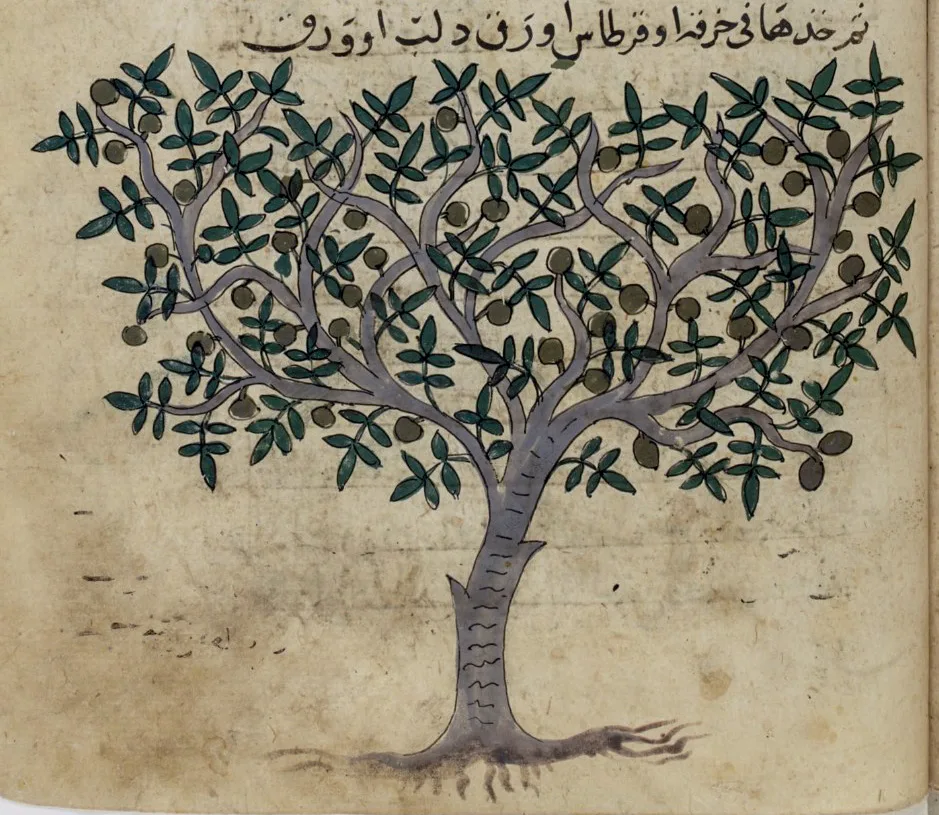 ثم خدها فى خرقه او قرطاس او رق دلب او ورق